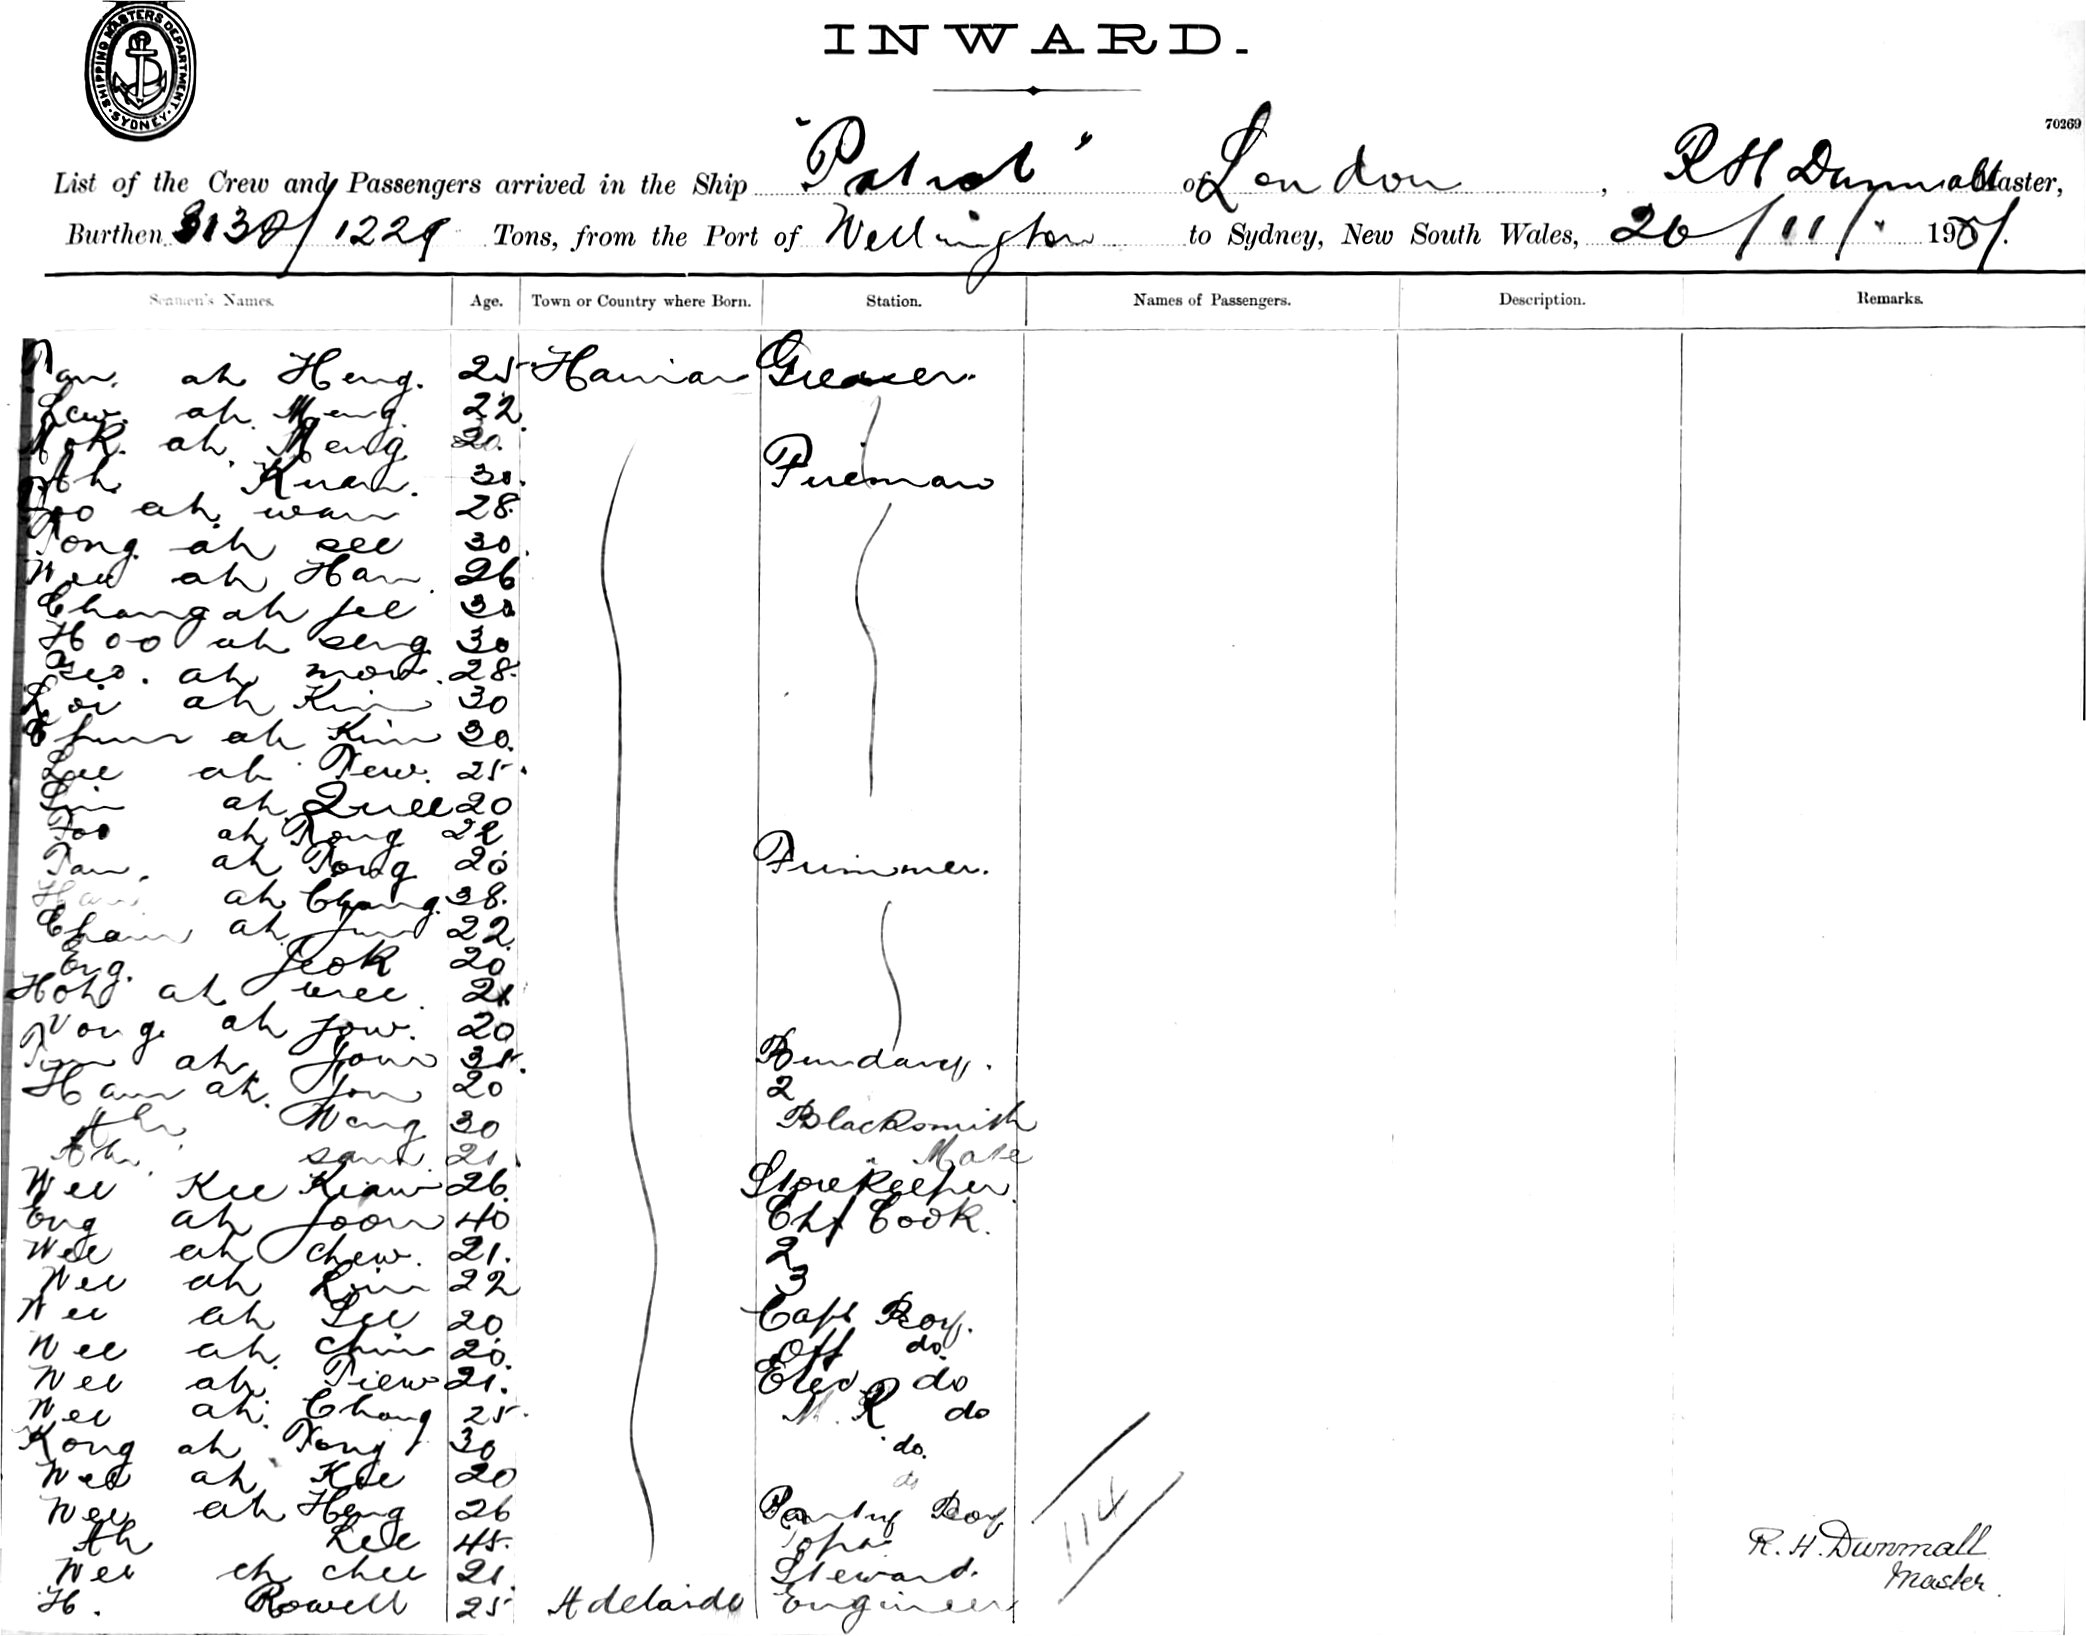 SHIPPING MASTERS DEPARTMENT · SYDNEY ·
INWARD.
70269
List of the Crew and Passengers arrived in the Ship "Patrol" of London, R H Dunmall Master,
Burthen 3138/1229 Tons, from the Port of Wellington to Sydney, New South Wales, 26/11/ 190
Seamen's Names. Age. Town or Country where Born. Station. Names of Passengers. Description. Remarks.
Tan ah Heng. 25 Hainan Greaser.
Lew. ah Meng. 22
Mok. ah Meng 20.
Ah Kuan. 30. Fireman
Foo ah wan 28.
Tong ah see 30.
Wee ah Han 26
Chong ah Jee 30
Hoo ah seng 30
ah mow. 28.
Loi ah Kim 30
ah Kim 30.
Lee ah Tew. 25.
Lim ah Quee 20
Foo ah Tong 22
Tan. ah Tong 20 Trimmer.
Han ah Chong. 38.
ah Jun 22.
Eng. Jeok 20
Hoh ah wee 21
Vong ah Jow. 20
ah Jow 35. Bundary.
Ham ah. Jon 20 2
Ah Wang 30 Blacksmith
Ah san 21 " Mate
Wee Kee Kiaw 26. Storekeeper.
Eng ah Joon 40 Chf Cook.
Wee ah chew. 21. 2
Wee ah Lim 22 3
Wee ah Lee 20 Capt Boy.
Wee ah chin 20. Off do.
Wee ah Tiew 21. do
Wee ah Chong 25. M. R do
Kong ah Tong 30 do.
Wee ah Kee 20 do
Wee ah Heng 26 Pantry Boy
Ah Lee 45. Topas
Wee ch chee 21. Steward.
H. Rowell 25 Adelaide Engineer
114
R. H. Dunmall
Master.